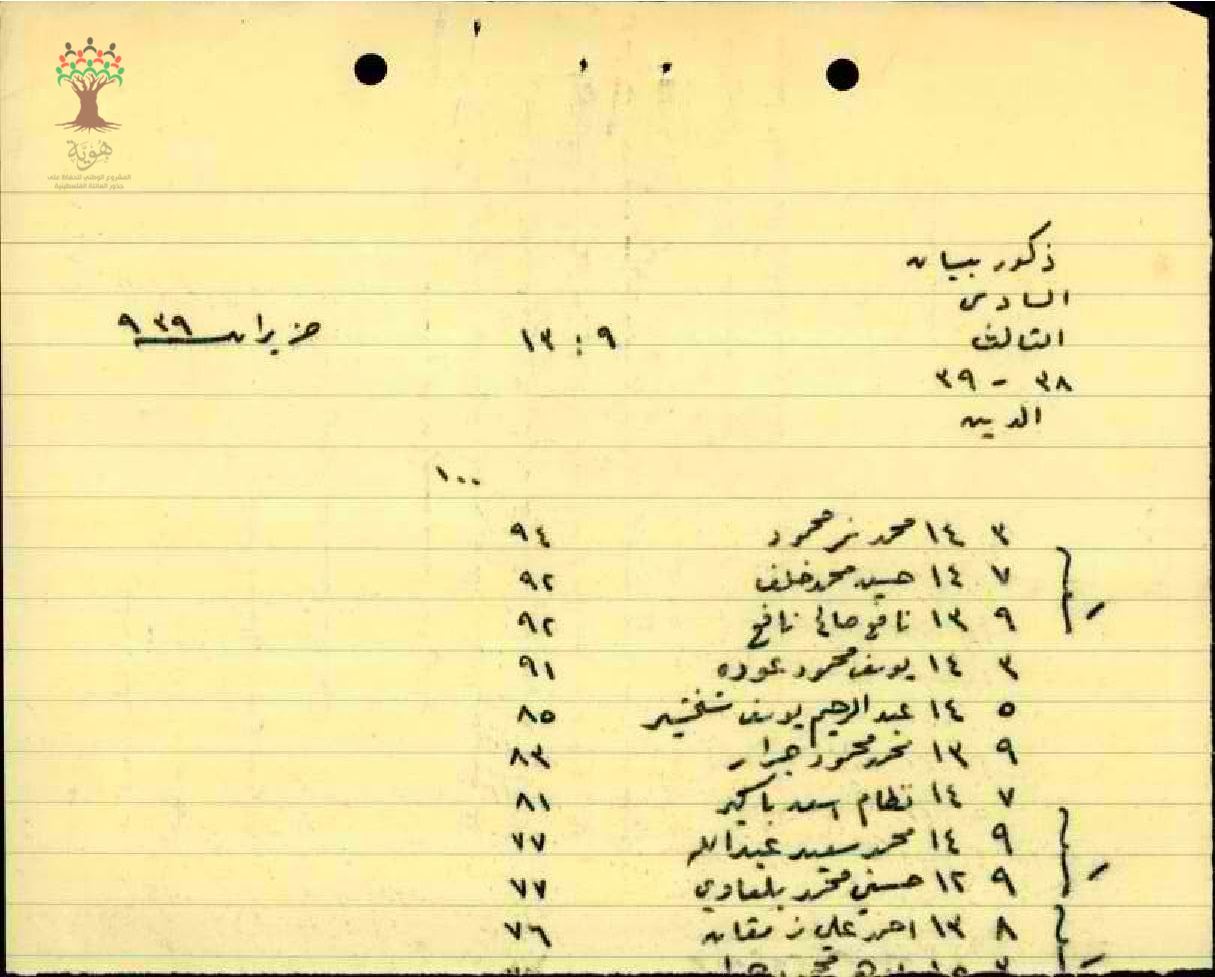 هُوِيَّة
المشروع الوطني للحفاظ على
جذور العائلة الفلسطينية
ذكور بيسان
السادس
الثالث ٩ : ١٣ حزيران ٩٣٩
٣٨ - ٣٩
الدين
١٠٠
٣ ١٤ محمد نمر محمود ٩٤
٧ ١٤ حسين محمد خلف ٩٢
٩ ١٣ نافع صالح نافع ٩٢
٣ ١٤ يوسف محمود عوده ٩١
٥ ١٤ عبد الرحيم يوسف شخشير ٨٥
٩ ١٣ محمد محمود جرار ٨٣
٧ ١٤ نظام اسعد باكير ٨١
٩ ١٤ محمد سعيد عبدالله ٧٧
٩ ١٢ حسني محمد بلعاوي ٧٧
٨ ١٣ احمد علي ٧٦